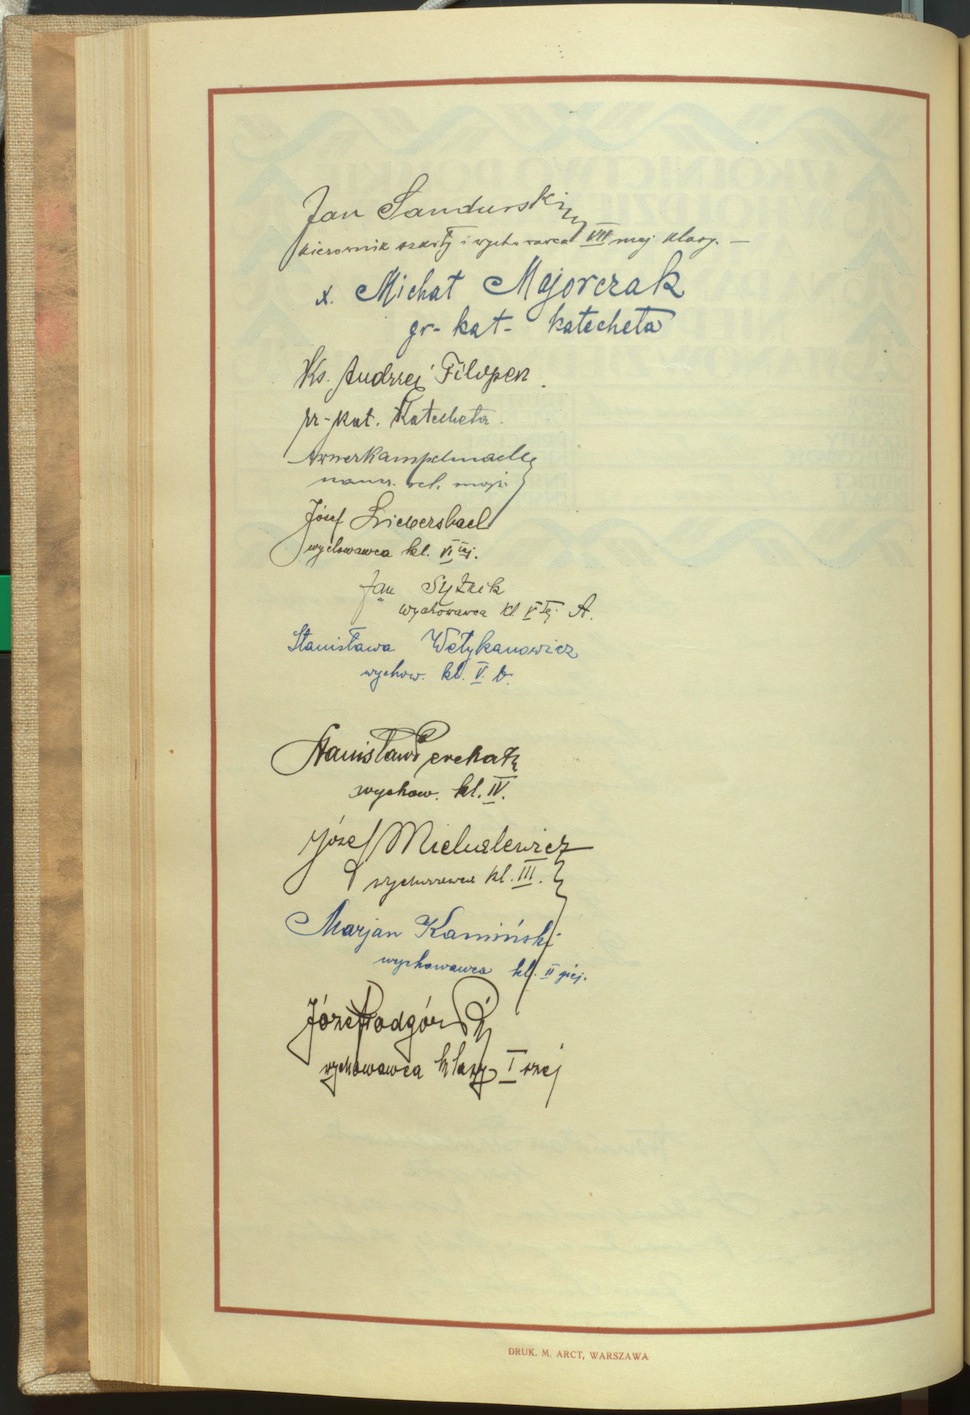 Jan Sandurski
kierownik szkoły i wychowawca VII mej klasy. —
x. Michał Majorczak
gr- kat- katecheta
Ks. Andrzej Filipen
kat. Katecheta
mojż.
Józef
wychowawca kl. VI tej.
Jan Syżnik
wychowawca kl V tej A.
Stanisława Wetykanowicz
wychow. kl. V. b.
Stanisław
wychow. kl. IV.
Józef
wychowawca kl. III.
Marjan Kamiński
wychowawca kl. II giej.
Józef Podgórski
wychowawca klasy I szej
DRUK. M. ARCT, WARSZAWA